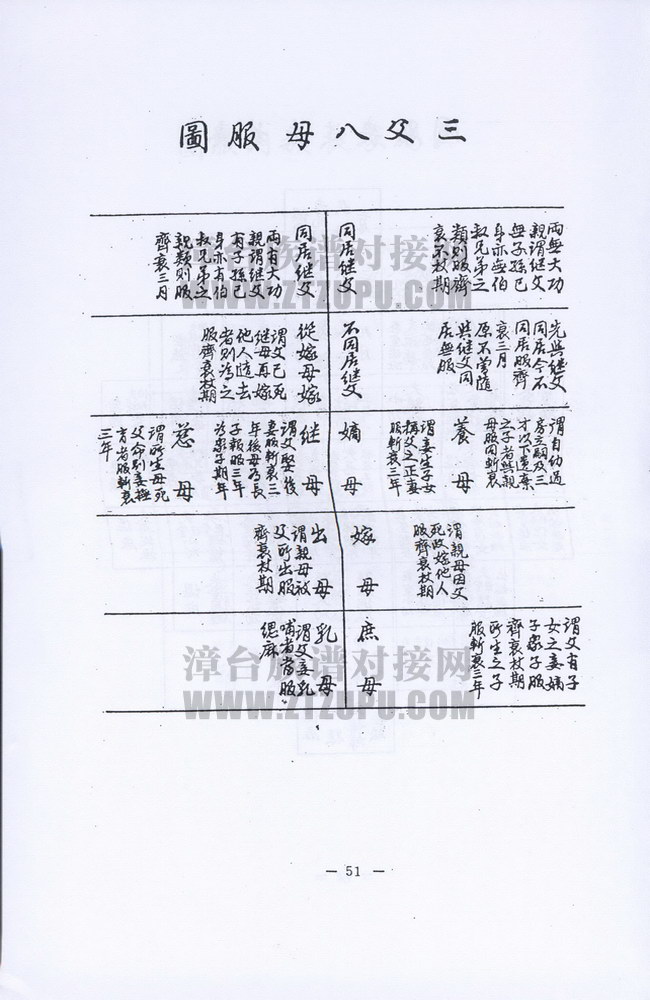 三父八母服圖
同居继父
兩無大功
親謂继父
無子孫己
身亦無伯
叔兄弟之
類則服齊
衰不杖期
同居继父
兩有大功
親謂继父
有子孫己
身亦有伯
叔兄弟之
親類則服
齊衰三月
不同居继父
先與继父
同居今不
同居服齊
衰三月
原不常隨
與继父同
居無服
從嫁母嫁
謂父已死
继母再嫁
他人隨去
者則為之
服齊衰杖期
養母
謂自幼過
房立嗣及三
才以下遺棄
之子者與親
母服同斬衰
嫡母
謂妾生子女
稱父之正妻
服斬衰三年
继母
謂父娶後
妻服斬衰三
年後母為長
子賴服三年
為衆子期年
慈母
謂所生母死
父命別妾撫
育者服斬衰
三年
嫁母
謂親母因父
死改嫁他人
服齊衰杖期
出母
謂親母被
父所出服
齊衰杖期
庶母
謂父有子
女之妾嫡
子衆子服
齊衰杖期
所生之子
服斬衰三年
乳母
謂父妾乳
哺者育服
缌麻
漳台族谱对接网
WWW.ZTZUPU.COM
漳台族谱对接网
WWW.ZTZUPU.COM
— 51 —